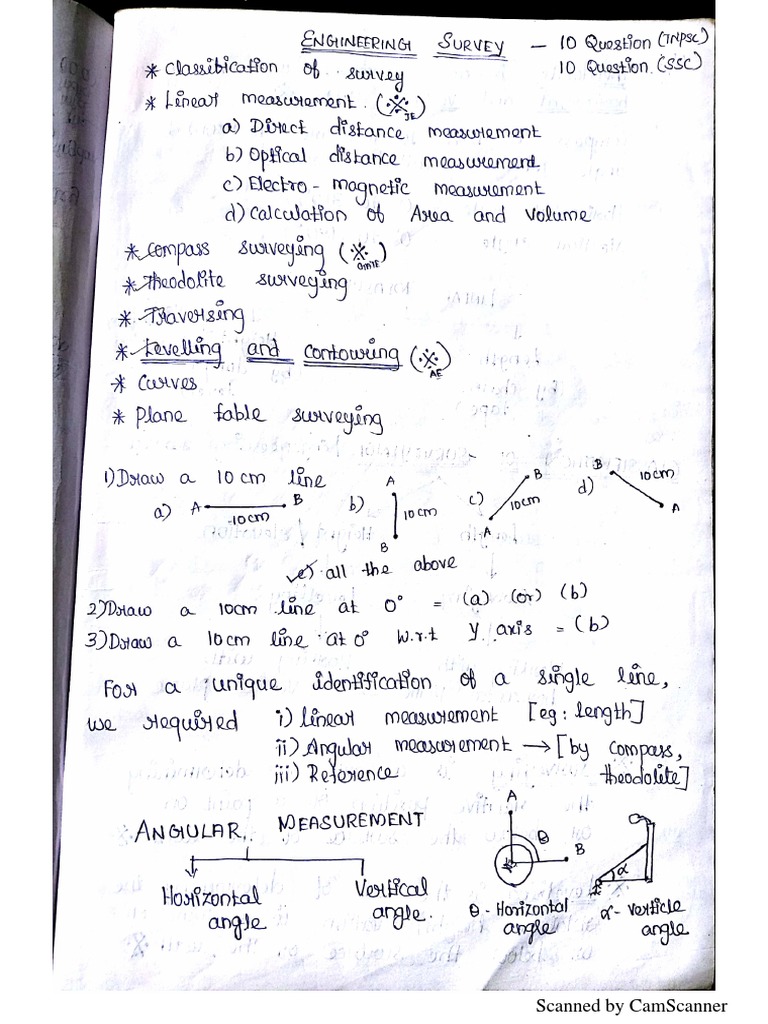 ENGINEERING SURVEY - 10 Question (TNPSC)
10 Question (SSC)
* Classification of survey
* Linear measurement (※ JE)
a) Direct distance measurement
b) Optical distance measurement
c) Electro-magnetic measurement
d) Calculation of Area and Volume
* Compass surveying (※)
* Theodolite surveying
* Traversing
* Levelling and contouring (※ AE)
* Curves
* Plane table surveying
1) Draw a 10 cm line
a) A B 10 cm
b) A 10 cm B
c) B 10 cm A
d) B 10 cm A
e) all the above
2) Draw a 10cm line at 0° = (a) (or) (b)
3) Draw a 10cm line at 0° w.r.t Y axis = (b)
For a unique identification of a single line,
we required i) linear measurement [eg: length]
ii) Angular measurement → [by compass,
theodolite]
iii) Reference
ANGULAR MEASUREMENT
Horizontal
angle
Vertical
angle.
A
θ
B
θ - Horizontal
angle
α
α - verticle
angle
Scanned by CamScanner